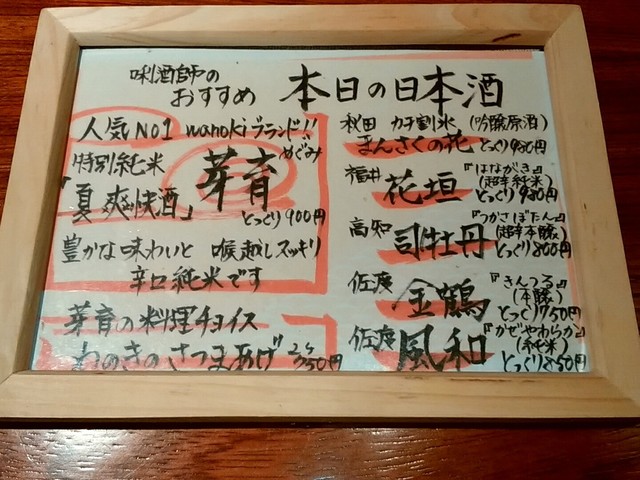 唎酒師の
おすすめ
本日の日本酒
人気NO1 wanokiブランド!!
特別純米
芽育
めぐみ
「夏 爽快酒」
とっくり900円
豊かな味わいと 喉越しスッキリ
辛口純米です
芽育の料理チョイス
わのきのさつまあげ 2ヶ 350円
秋田 カチ割氷 (吟醸原酒)
まんさくの花 とっくり980円
福井 花垣
『はながき』
(超辛純米)
とっくり980円
高知 司牡丹
『つかさぼたん』
(超辛本醸)
とっくり800円
佐渡 金鶴
『きんつる』
(本醸)
とっくり750円
佐渡 風和
『かぜやわらか』
(純米)
とっくり850円